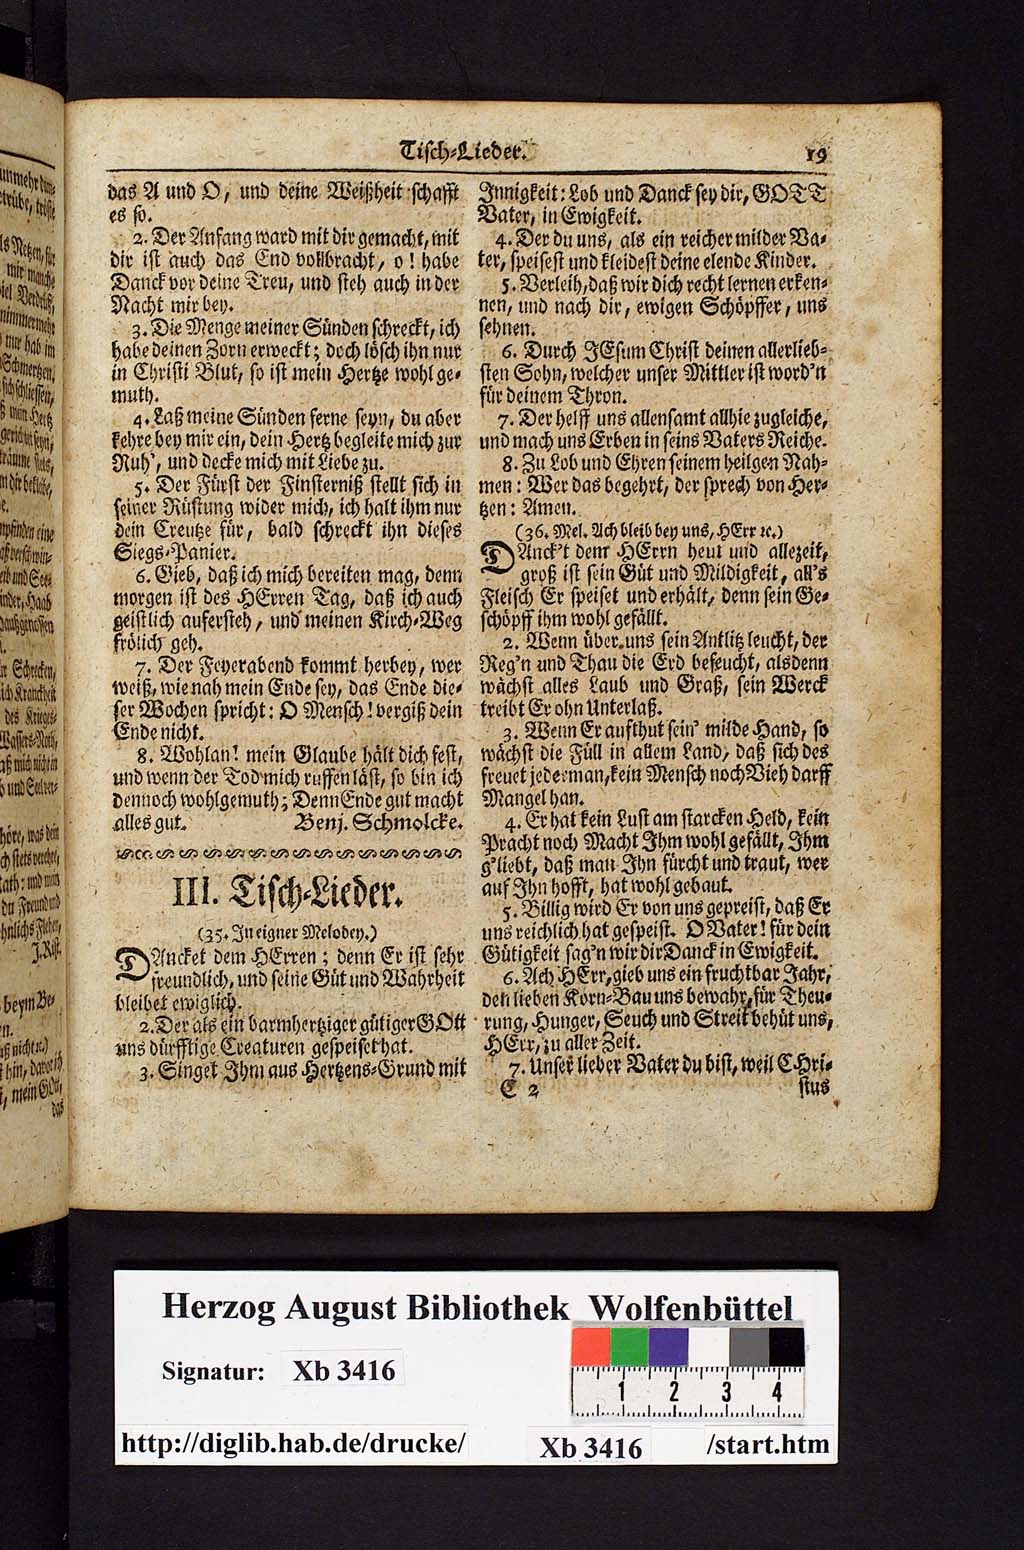 Tisch-Lieder. 19
das A und O, und deine Weißheit schafft
es so.
2. Der Anfang ward mit dir gemacht, mit
dir ist auch das End vollbracht, o! habe
Danck vor deine Treu, und steh auch in der
Nacht mir bey.
3. Die Menge meiner Sünden schreckt, ich
habe deinen Zorn erweckt; doch lösch ihn nur
in Christi Blut, so ist mein Hertze wohl ge-
muth.
4. Laß meine Sünden ferne seyn, du aber
kehre bey mir ein, dein Hertz begleite mich zur
Ruh', und decke mich mit Liebe zu.
5. Der Fürst der Finsterniß stellt sich in
seiner Rüstung wider mich, ich halt ihm nur
dein Creutze für, bald schreckt ihn dieses
Siegs-Panier.
6. Gieb, daß ich mich bereiten mag, denn
morgen ist des HErren Tag, daß ich auch
geistlich aufersteh, und meinen Kirch-Weg
frölich geh.
7. Der Feyerabend kommt herbey, wer
weiß, wie nah mein Ende sey, das Ende die-
ser Wochen spricht: O Mensch! vergiß dein
Ende nicht.
8. Wohlan! mein Glaube hält dich fest,
und wenn der Tod mich ruffen läst, so bin ich
dennoch wohlgemuth; Denn Ende gut macht
alles gut. Benj. Schmolcke.
III. Tisch-Lieder.
(35. In eigner Melodey.)
DAncket dem HErren; denn Er ist sehr
freundlich, und seine Güt und Wahrheit
bleibet ewiglich.
2. Der als ein barmhertziger gütiger GOtt
uns dürfftige Creaturen gespeiset hat.
3. Singet Ihm aus Hertzens-Grund mit
Innigkeit: Lob und Danck sey dir, GOTT
Vater, in Ewigkeit.
4. Der du uns, als ein reicher milder Va-
ter, speisest und kleidest deine elende Kinder.
5. Verleih, daß wir dich recht lernen erken-
nen, und nach dir, ewigen Schöpffer, uns
sehnen.
6. Durch JEsum Christ deinen allerlieb-
sten Sohn, welcher unser Mittler ist word'n
für deinem Thron.
7. Der helff uns allensamt allhie zugleiche,
und mach uns Erben in seins Vaters Reiche.
8. Zu Lob und Ehren seinem heilgen Nah-
men: Wer das begehrt, der sprech von Her-
tzen: Amen.
(36. Mel. Ach bleib bey uns, HErr ꝛc.)
DAnck't dem HErrn heut und allezeit,
groß ist sein Güt und Mildigkeit, all's
Fleisch Er speiset und erhält, denn sein Ge-
schöpff ihm wohl gefällt.
2. Wenn über uns sein Antlitz leucht, der
Reg'n und Thau die Erd befeucht, alsdenn
wächst alles Laub und Graß, sein Werck
treibt Er ohn Unterlaß.
3. Wenn Er aufthut sein' milde Hand, so
wächst die Füll in allem Land, daß sich des
freuet jederman, kein Mensch noch Vieh darff
Mangel han.
4. Er hat kein Lust am starcken Held, kein
Pracht noch Macht Ihm wohl gefällt, Ihm
g'liebt, daß man Ihn fürcht und traut, wer
auf Ihn hofft, hat wohl gebaut.
5. Billig wird Er von uns gepreist, daß Er
uns reichlich hat gespeist. O Vater! für dein
Gütigkeit sag'n wir dir Danck in Ewigkeit.
6. Ach HErr, gieb uns ein fruchtbar Jahr,
den lieben Korn-Bau uns bewahr, für Theu-
rung, Hunger, Seuch und Streit behüt uns,
HErr, zu aller Zeit.
7. Unser lieber Vater du bist, weil CHri-
C 2 stus
Herzog August Bibliothek Wolfenbüttel
Signatur: Xb 3416
1 2 3 4
http://diglib.hab.de/drucke/ Xb 3416 /start.htm